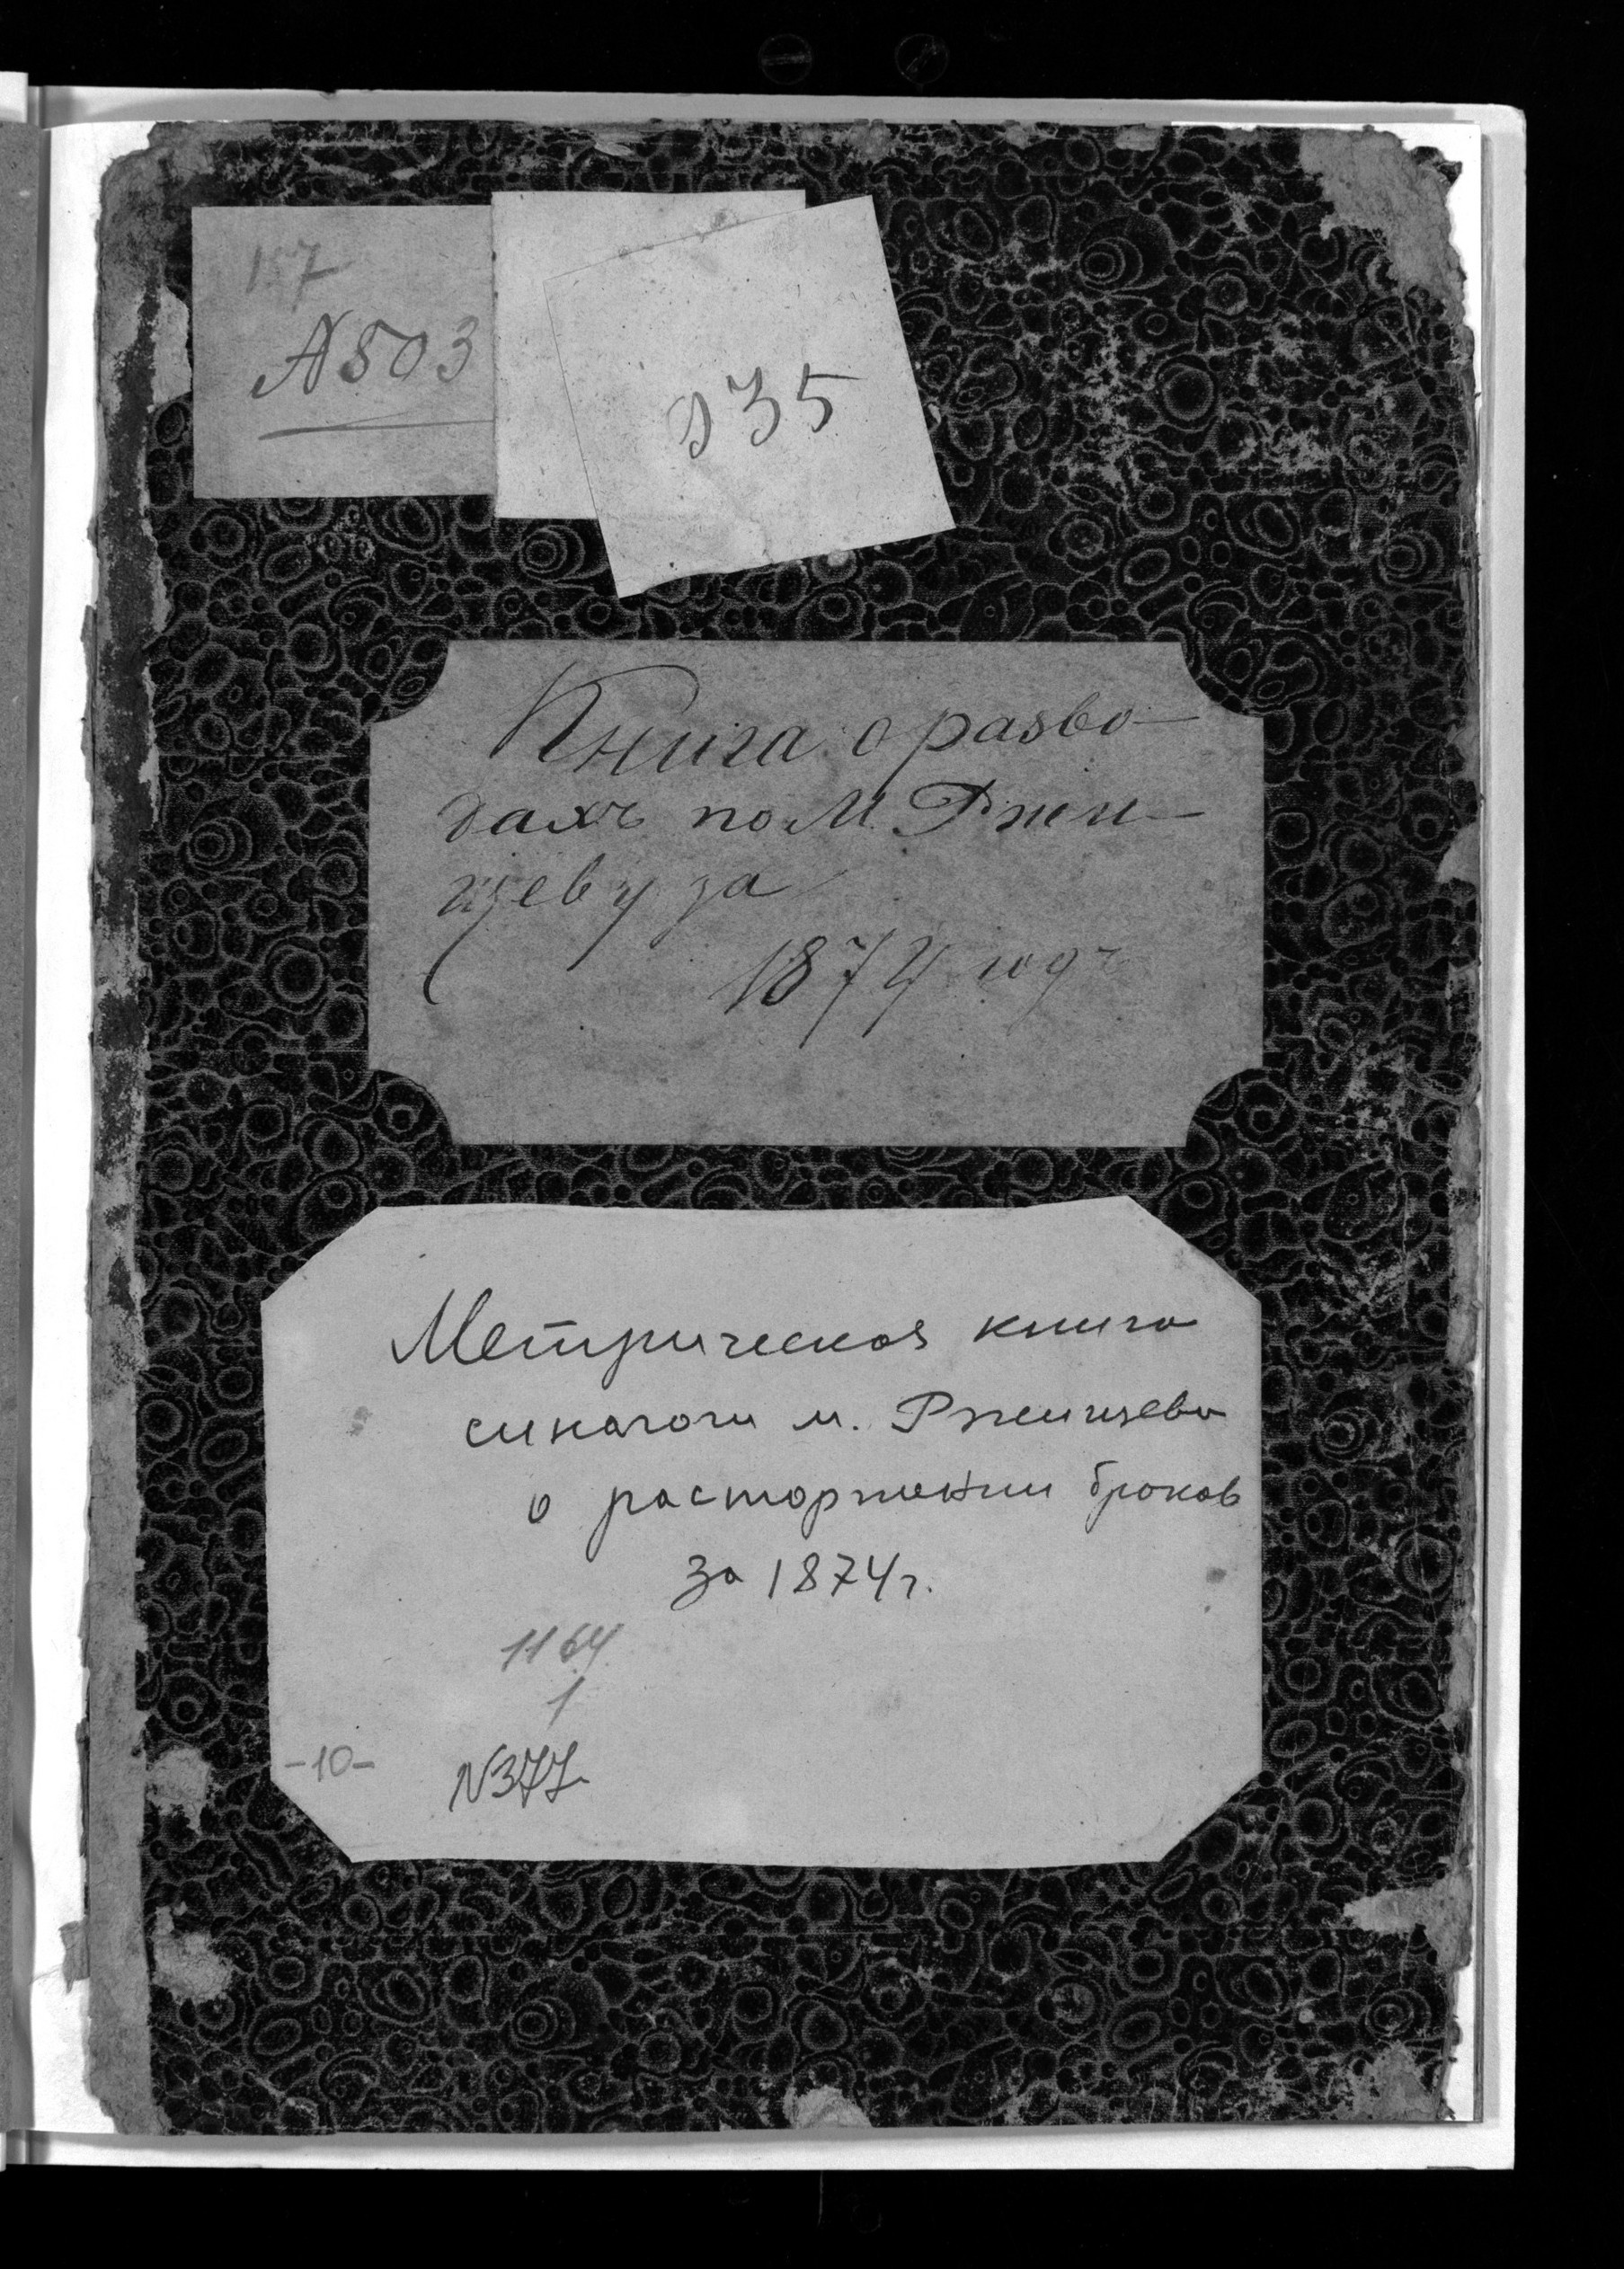 157
№503
935
Книга о разво-
дахъ по М. Ржи-
щеву за
1874 годъ
Метрическая книга
синагоги м. Ржищева
о расторжении браков
за 1874 г.
1164
1
-10-
N377